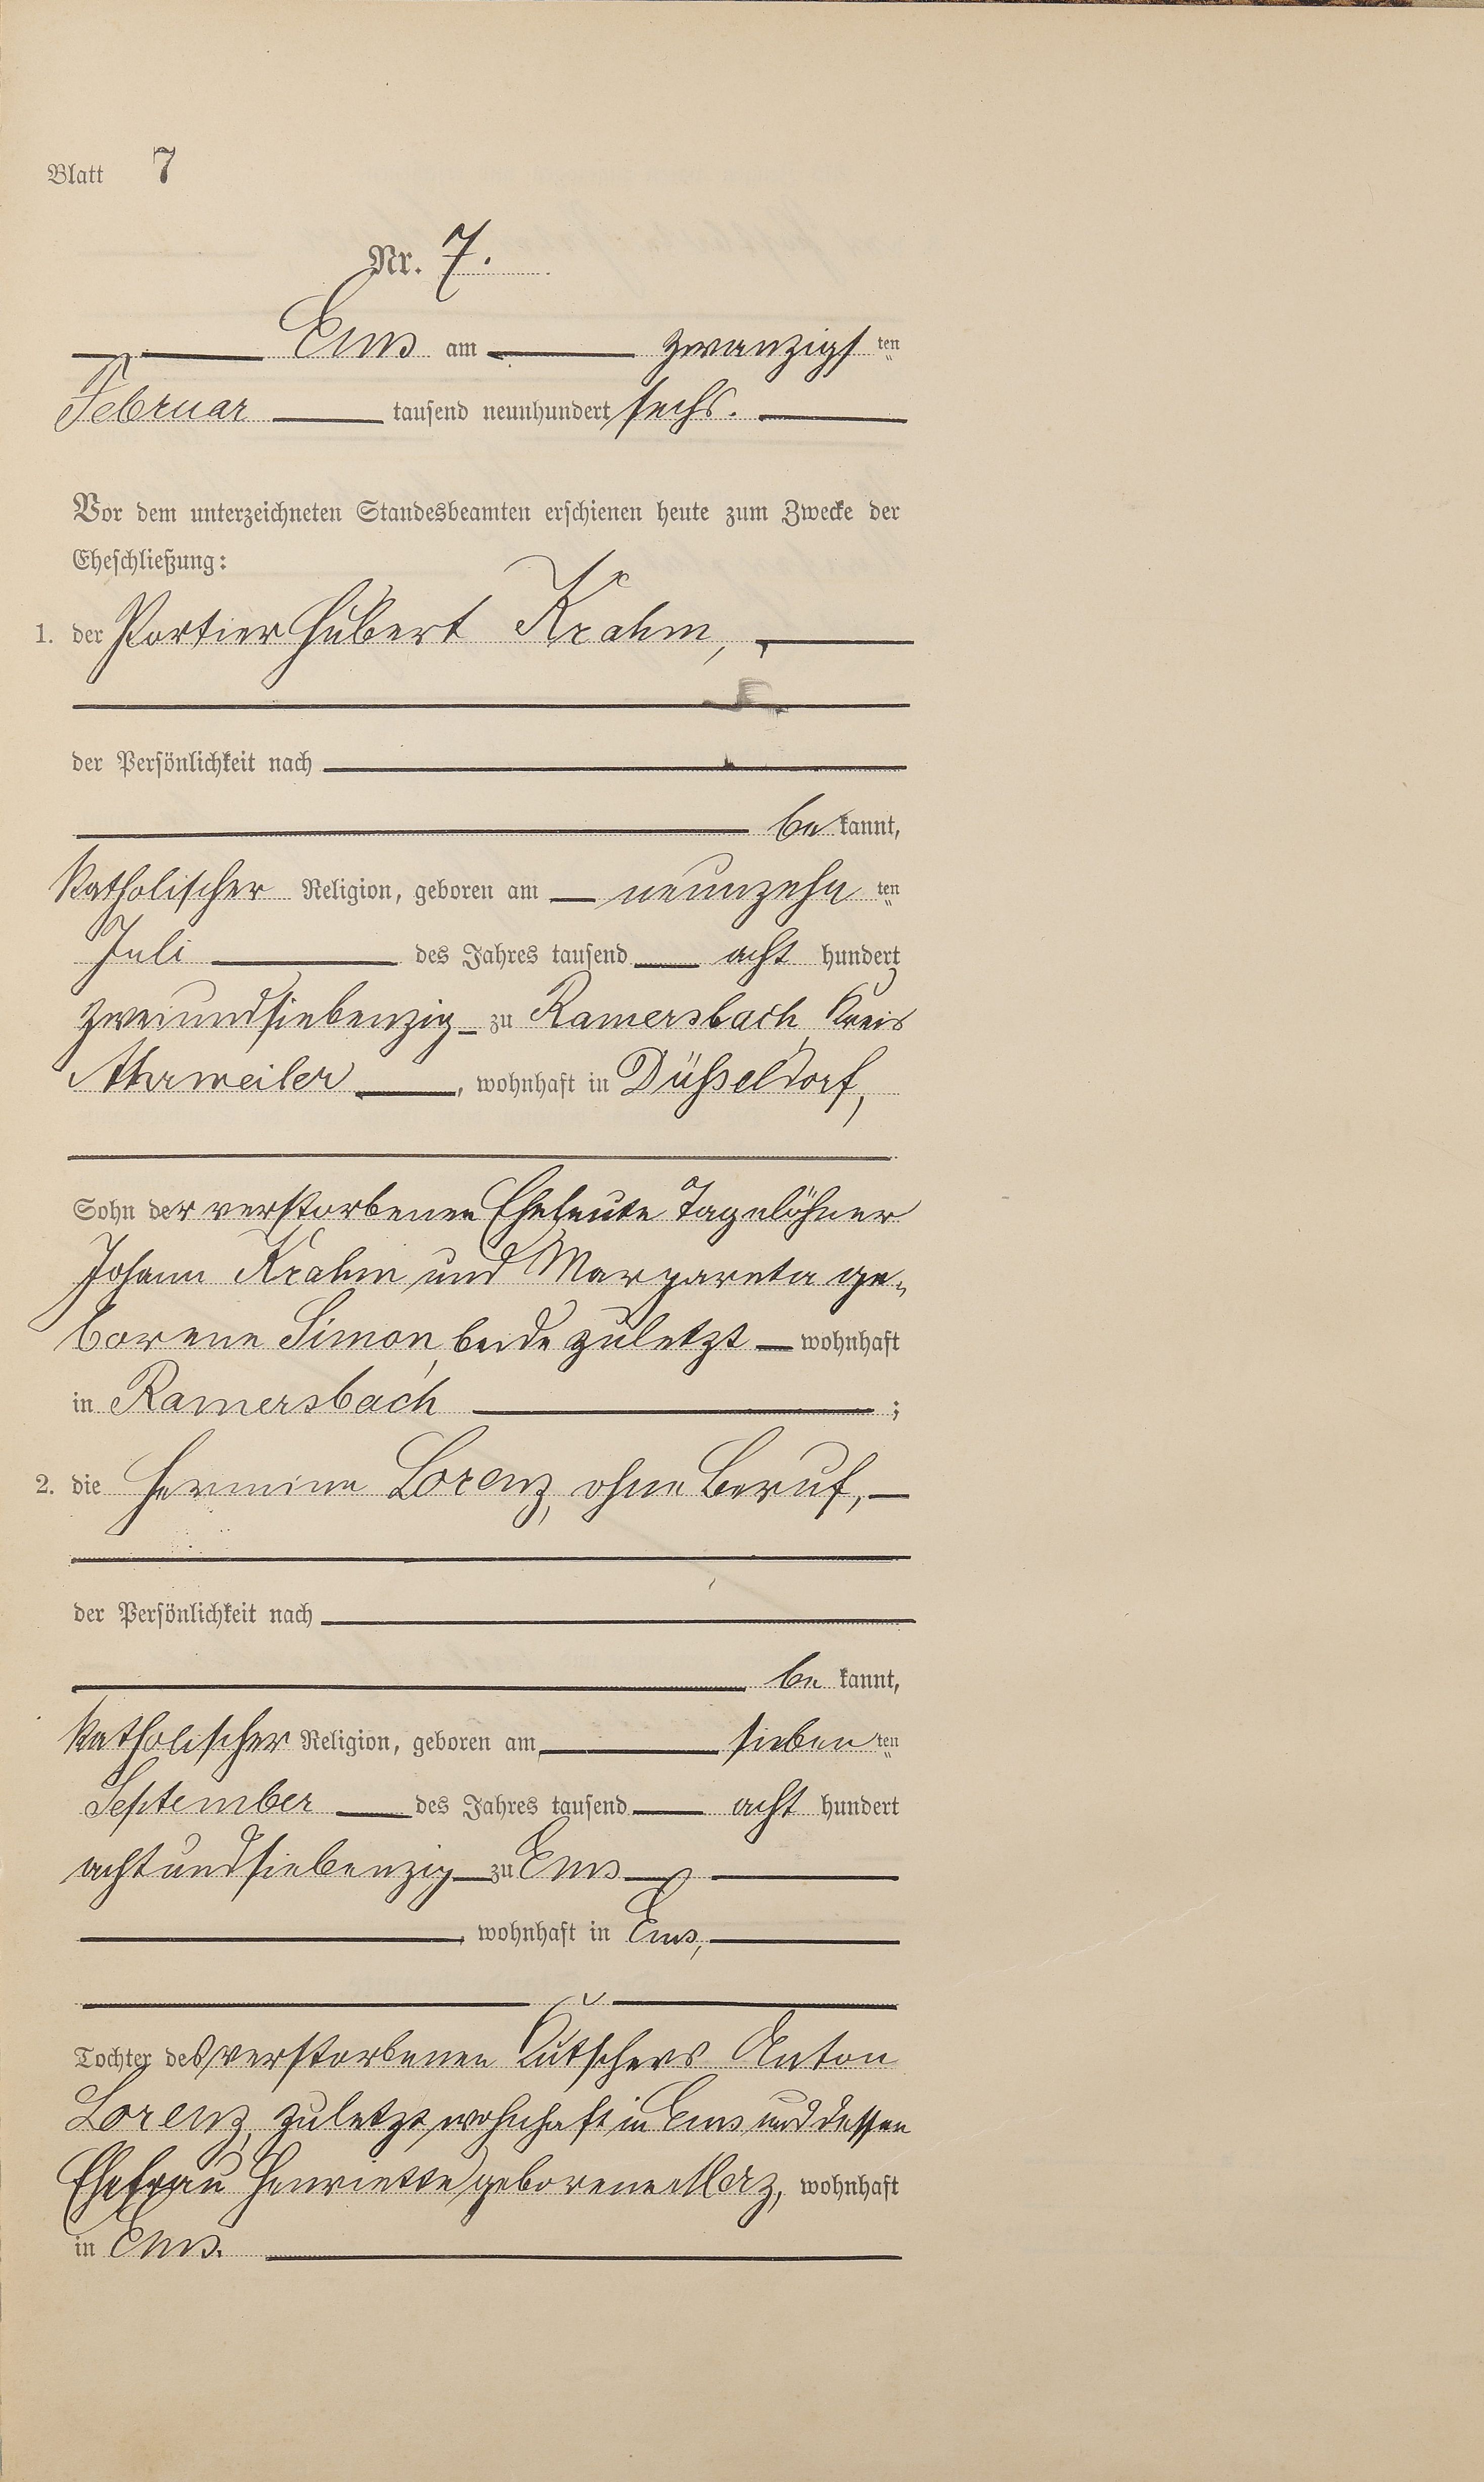 Blatt 7
Nr. 7.
Ems am zwanzigsten
Februar tausend neunhundert sechs.
Vor dem unterzeichneten Standesbeamten erschienen heute zum Zwecke der
Eheschließung:
1. der Portier Hubert Krahm,
der Persönlichkeit nach
bekannt,
katholischer Religion, geboren am neunzehnten
Juli des Jahres tausend acht hundert
zweiundsiebenzig zu Ramersbach, Kreis
Ahrweiler, wohnhaft in Düsseldorf,
Sohn der verstorbenen Eheleute Tagelöhner
Johann Krahm und Margareta ge-
borene Simon, beide zuletzt wohnhaft
in Ramersbach;
2. die Hermine Lorenz, ohne Beruf,
der Persönlichkeit nach
bekannt,
katholischer Religion, geboren am siebenten
September des Jahres tausend acht hundert
achtundsiebenzig zu Ems
, wohnhaft in Ems,
Tochter des verstorbenen Kutschers Anton
Lorenz, zuletzt wohnhaft in Ems und dessen
Ehefrau Henriette geborene Merz, wohnhaft
in Ems.